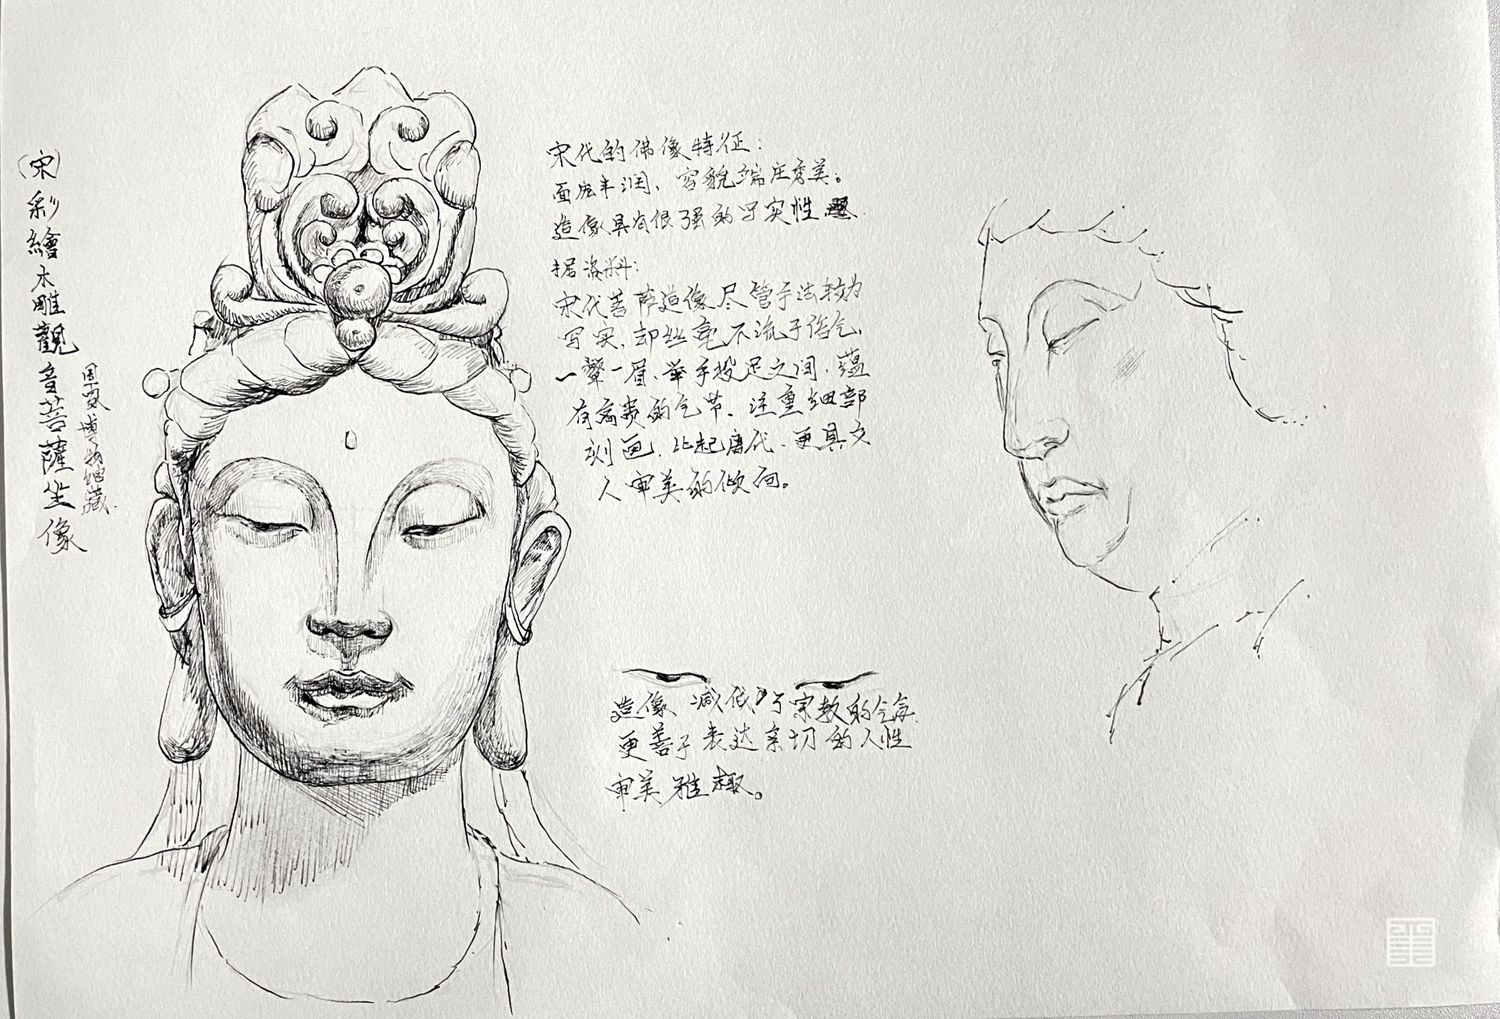 (宋)彩繪木雕觀音菩薩坐像
博物馆藏
宋代的佛像特征：
面庞丰润、容貌端庄秀美。
造像具有很强的写实性
据资料：
宋代菩萨造像尽管手法较为
写实、却丝毫不流于俗气，
一颦一眉、举手投足之间，蕴
有高贵的气节、注重细部
刻画，比起唐代，更具文
人审美的倾向。
造像减低了宗教的
更善于表达亲切的人性
审美雅趣。